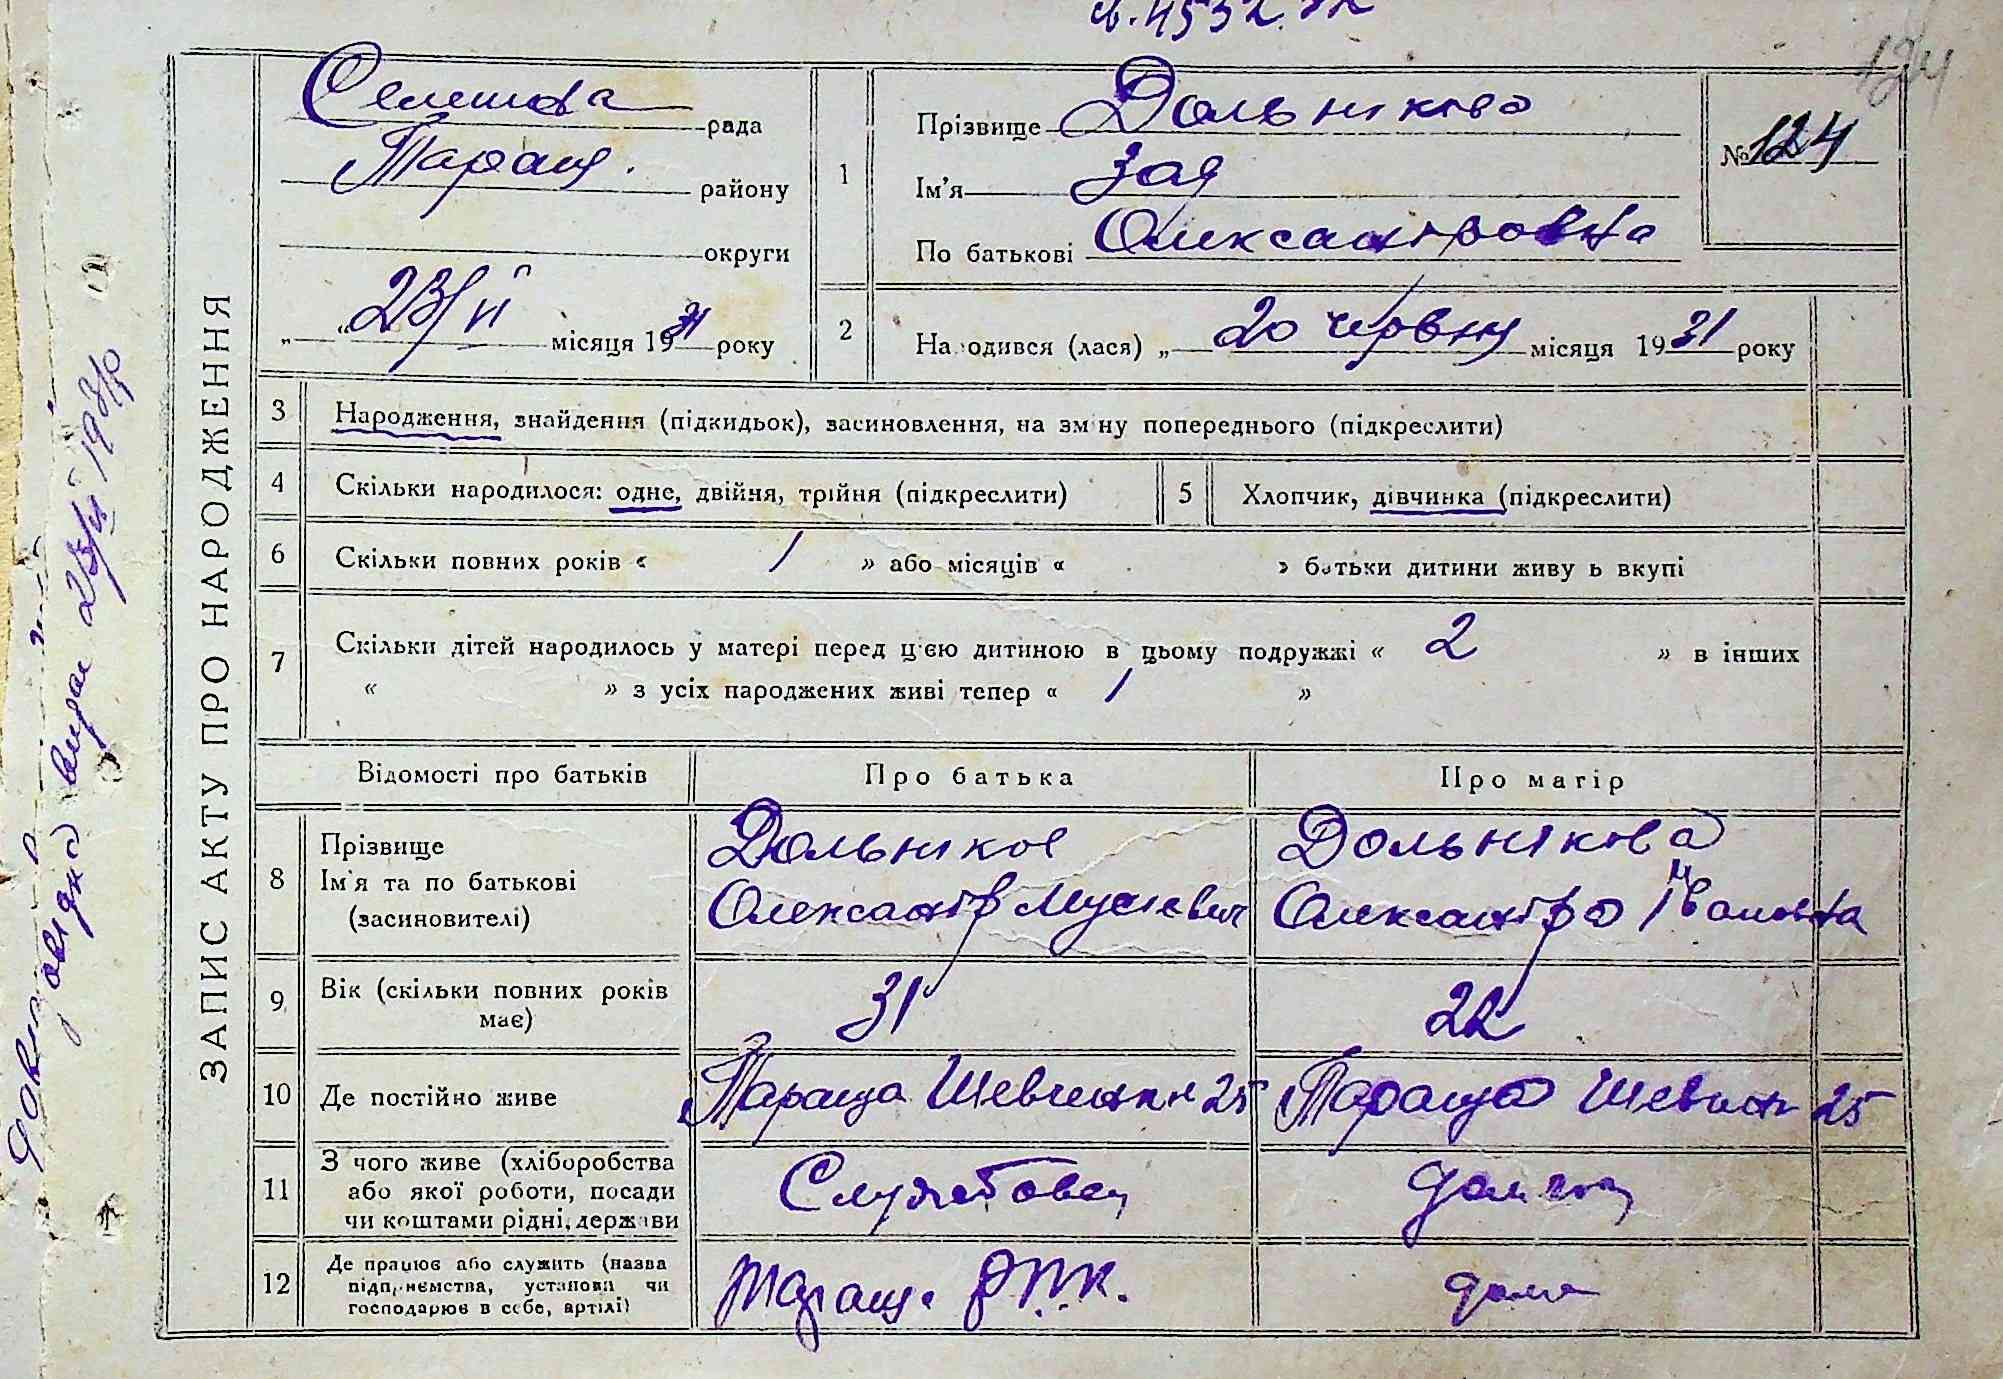 124
Селешова рада
Таращ. району
округи
„ “ 23/VI місяця 1931 року
1
Прізвище Дольнікова
Ім’я Зоя
По батькові Олександровна
№ 124
2
Народився (лася) „ 20 червня місяця 1931 року
ЗАПИС АКТУ ПРО НАРОДЖЕННЯ
3 Народження, знайдення (підкидьок), засиновлення, на зміну попереднього (підкреслити)
4 Скільки народилося: одне, двійня, трійня (підкреслити)
5 Хлопчик, дівчинка (підкреслити)
6 Скільки повних років « 1 » або місяців « » батьки дитини живуть вкупі
7 Скільки дітей народилось у матері перед цією дитиною в цьому подружжі « 2 » в інших
« » з усіх народжених живі тепер « 1 »
Відомості про батьків
Про батька
Про матір
8 Прізвище
Ім’я та по батькові
(засиновителі)
Дольніков
Олександр Мусієвич
Дольнікова
Олександра Івановна
9 Вік (скільки повних років
має)
31
22
10 Де постійно живе
Тараща Шевченк 25
Тараща Шевченк 25
11 З чого живе (хліборобства
або якої роботи, посади
чи коштами рідні, держави
Службовец
12 Де працює або служить (назва
підприємства, установи чи
господарює в себе, артілі)
Тараща РПК.
дома